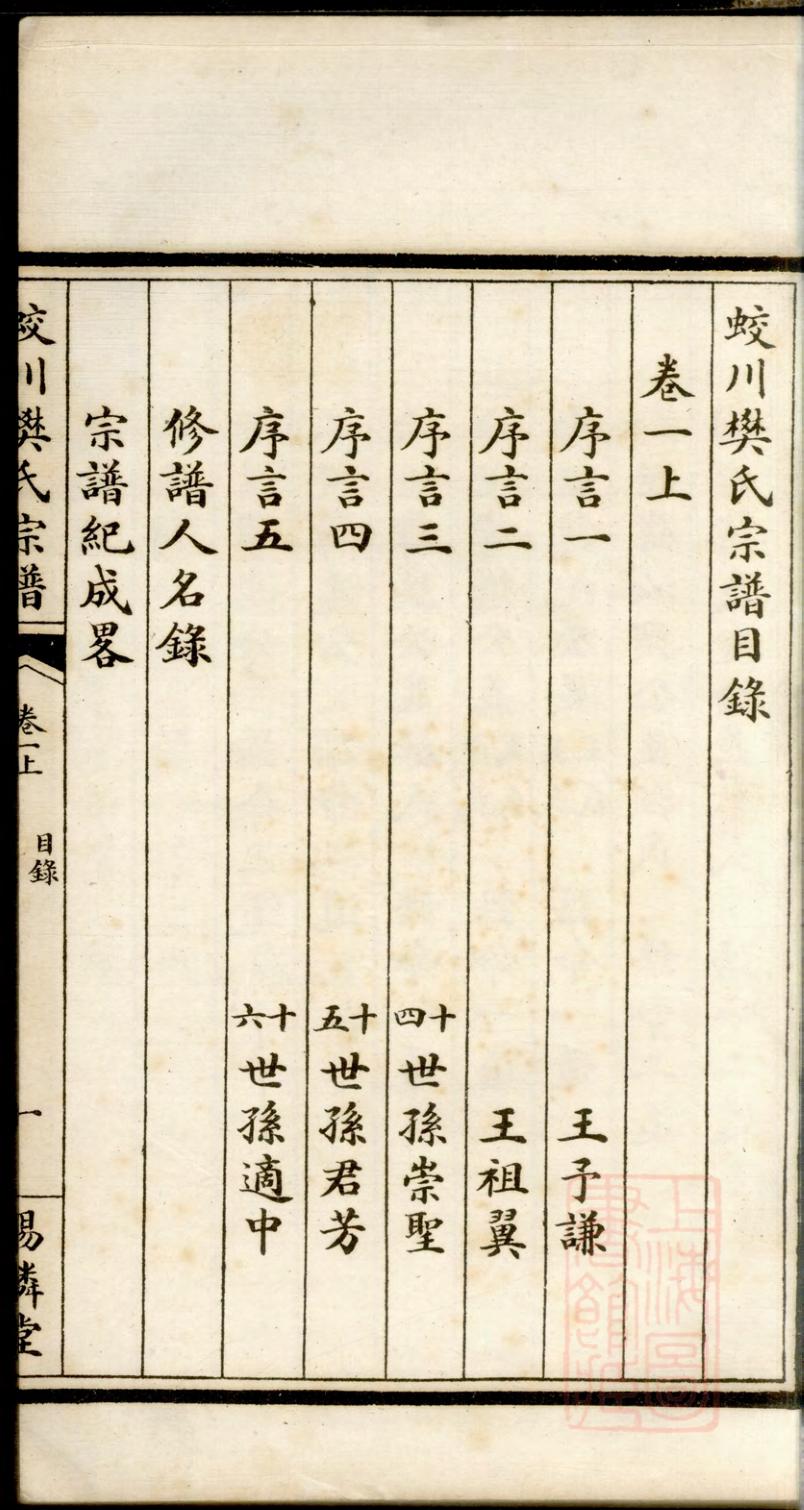 蛟川樊氏宗譜目錄
卷一上
序言一 王予謙
序言二 王祖翼
序言三 十四世孫崇聖
序言四 十五世孫君芳
序言五 十六世孫適中
修譜人名錄
宗譜紀成畧
蛟川樊氏宗譜 卷一上 目錄 一 錫麟堂
上海圖書館藏